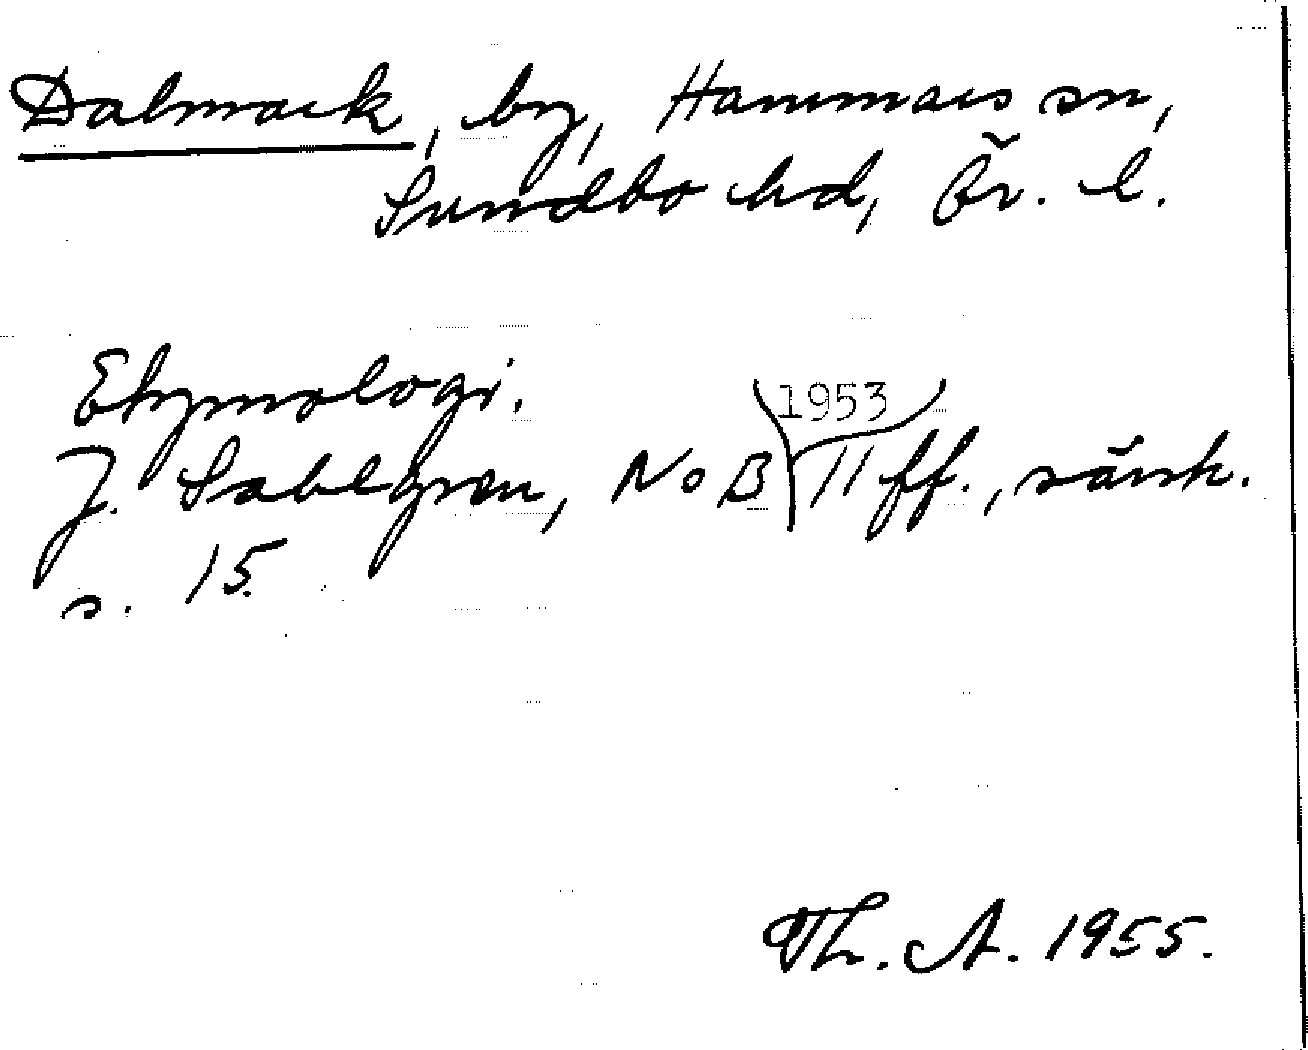 Dalmark, by, Hammars sn,
Sundbo hd, Ör. l.
Etymologi.
J. Sahlgren, NoB 1953 11 ff., särsk.
s. 15.
Th. A. 1955.